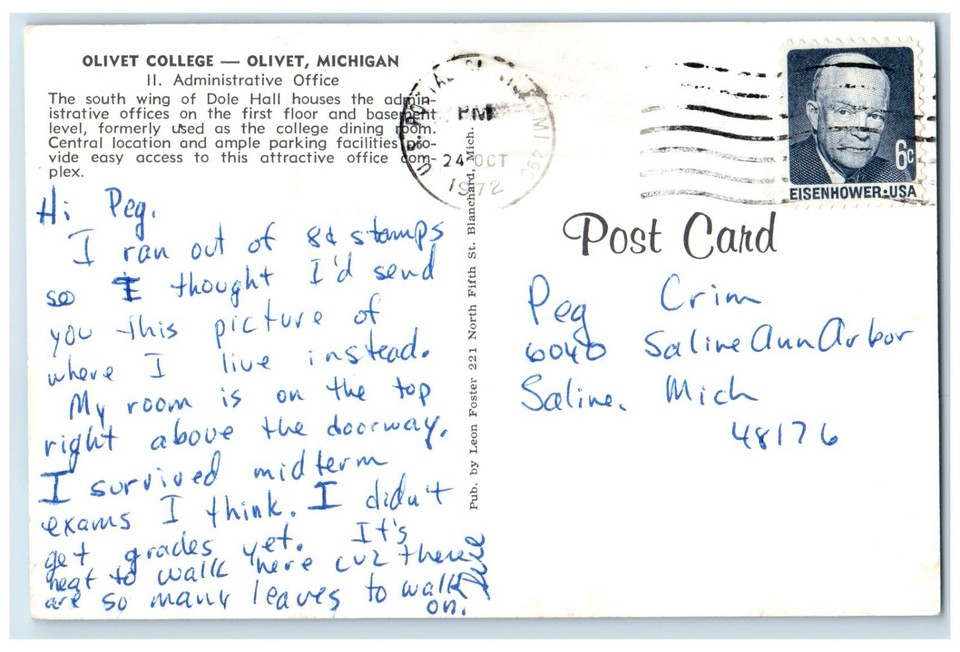 OLIVET COLLEGE — OLIVET, MICHIGAN
II. Administrative Office
The south wing of Dole Hall houses the admin-
istrative offices on the first floor and basement
level, formerly used as the college dining room.
Central location and ample parking facilities pro-
vide easy access to this attractive office com-
plex.
Hi Peg.
I ran out of 8¢ stamps
so I thought I'd send
you this picture of
where I live instead.
My room is on the top
right above the doorway.
I survived midterm
exams I think. I didn't
get grades yet. It's
neat to walk here cuz there
are so many leaves to walk
on.
Pub. by Leon Foster 221 North Fifth St. Blanchard, Mich.
PM
24 OCT
1972
6c
EISENHOWER·USA
Post Card
Peg Crim
6040 Saline Ann Arbor
Saline, Mich
48176